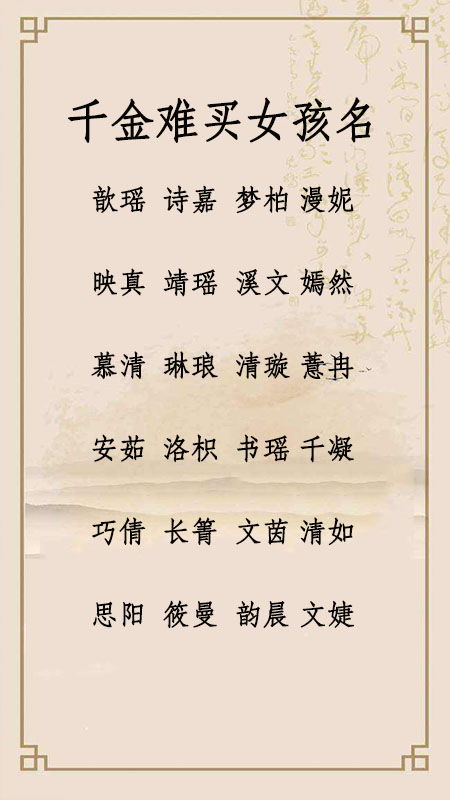 千金难买女孩名
歆瑶 诗嘉 梦柏 漫妮
映真 靖瑶 溪文 嫣然
慕清 琳琅 清璇 薏冉
安茹 洛枳 书瑶 千凝
巧倩 长箐 文茵 清如
思阳 筱曼 韵晨 文婕